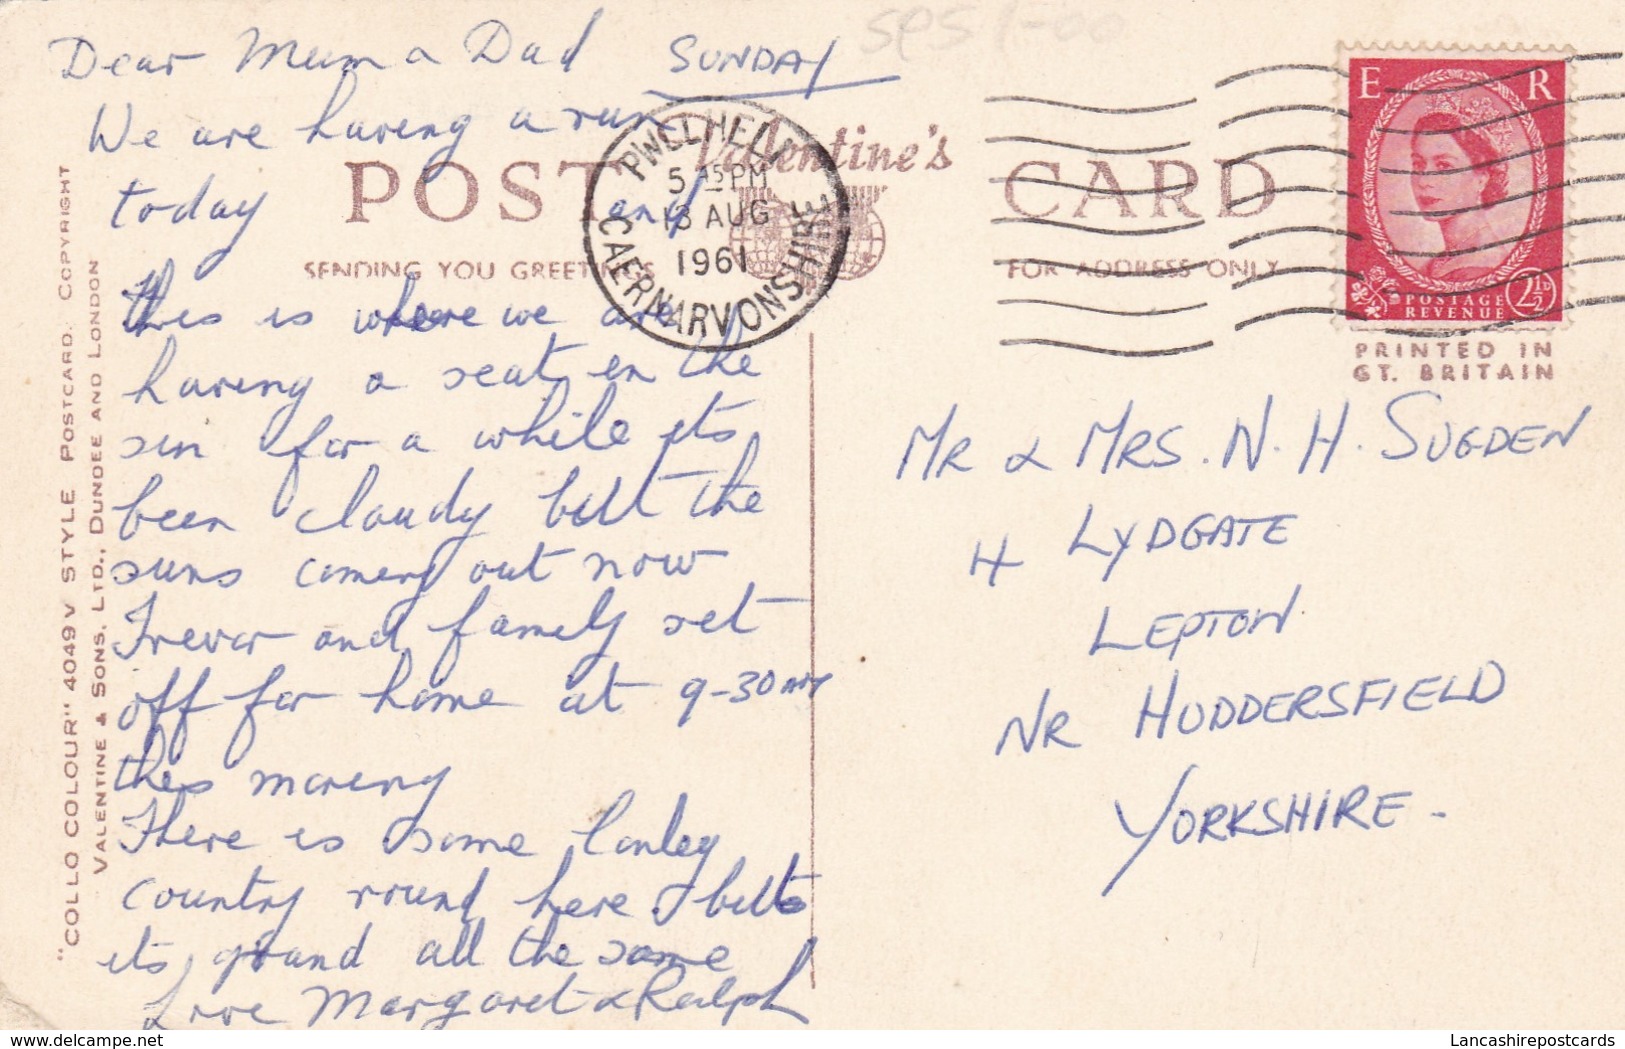 SPS 1-00
Dear Mum & Dad SUNDAY
We are having a run
today and
this is where we are
having a seat in the
sun for a while its
been cloudy but the
suns coming out now
Trevor and family set
off for home at 9-30 AM
this morning
There is some lonley
country round here but
its grand all the same
Love Margaret & Ralph
POST CARD
Valentine's
SENDING YOU GREETINGS
FOR ADDRESS ONLY
PWLLHELI
5 15 PM
13 AUG
1961
CAERNARVONSHIRE
E R
POSTAGE
REVENUE
2½D
PRINTED IN
GT. BRITAIN
MR & MRS. N. H. SUGDEN
4 LYDGATE
LEPTON
NR HUDDERSFIELD
YORKSHIRE -
"COLLO COLOUR" 4049 V STYLE POSTCARD. COPYRIGHT
VALENTINE & SONS, LTD., DUNDEE AND LONDON
delcampe.net
Lancashirepostcards